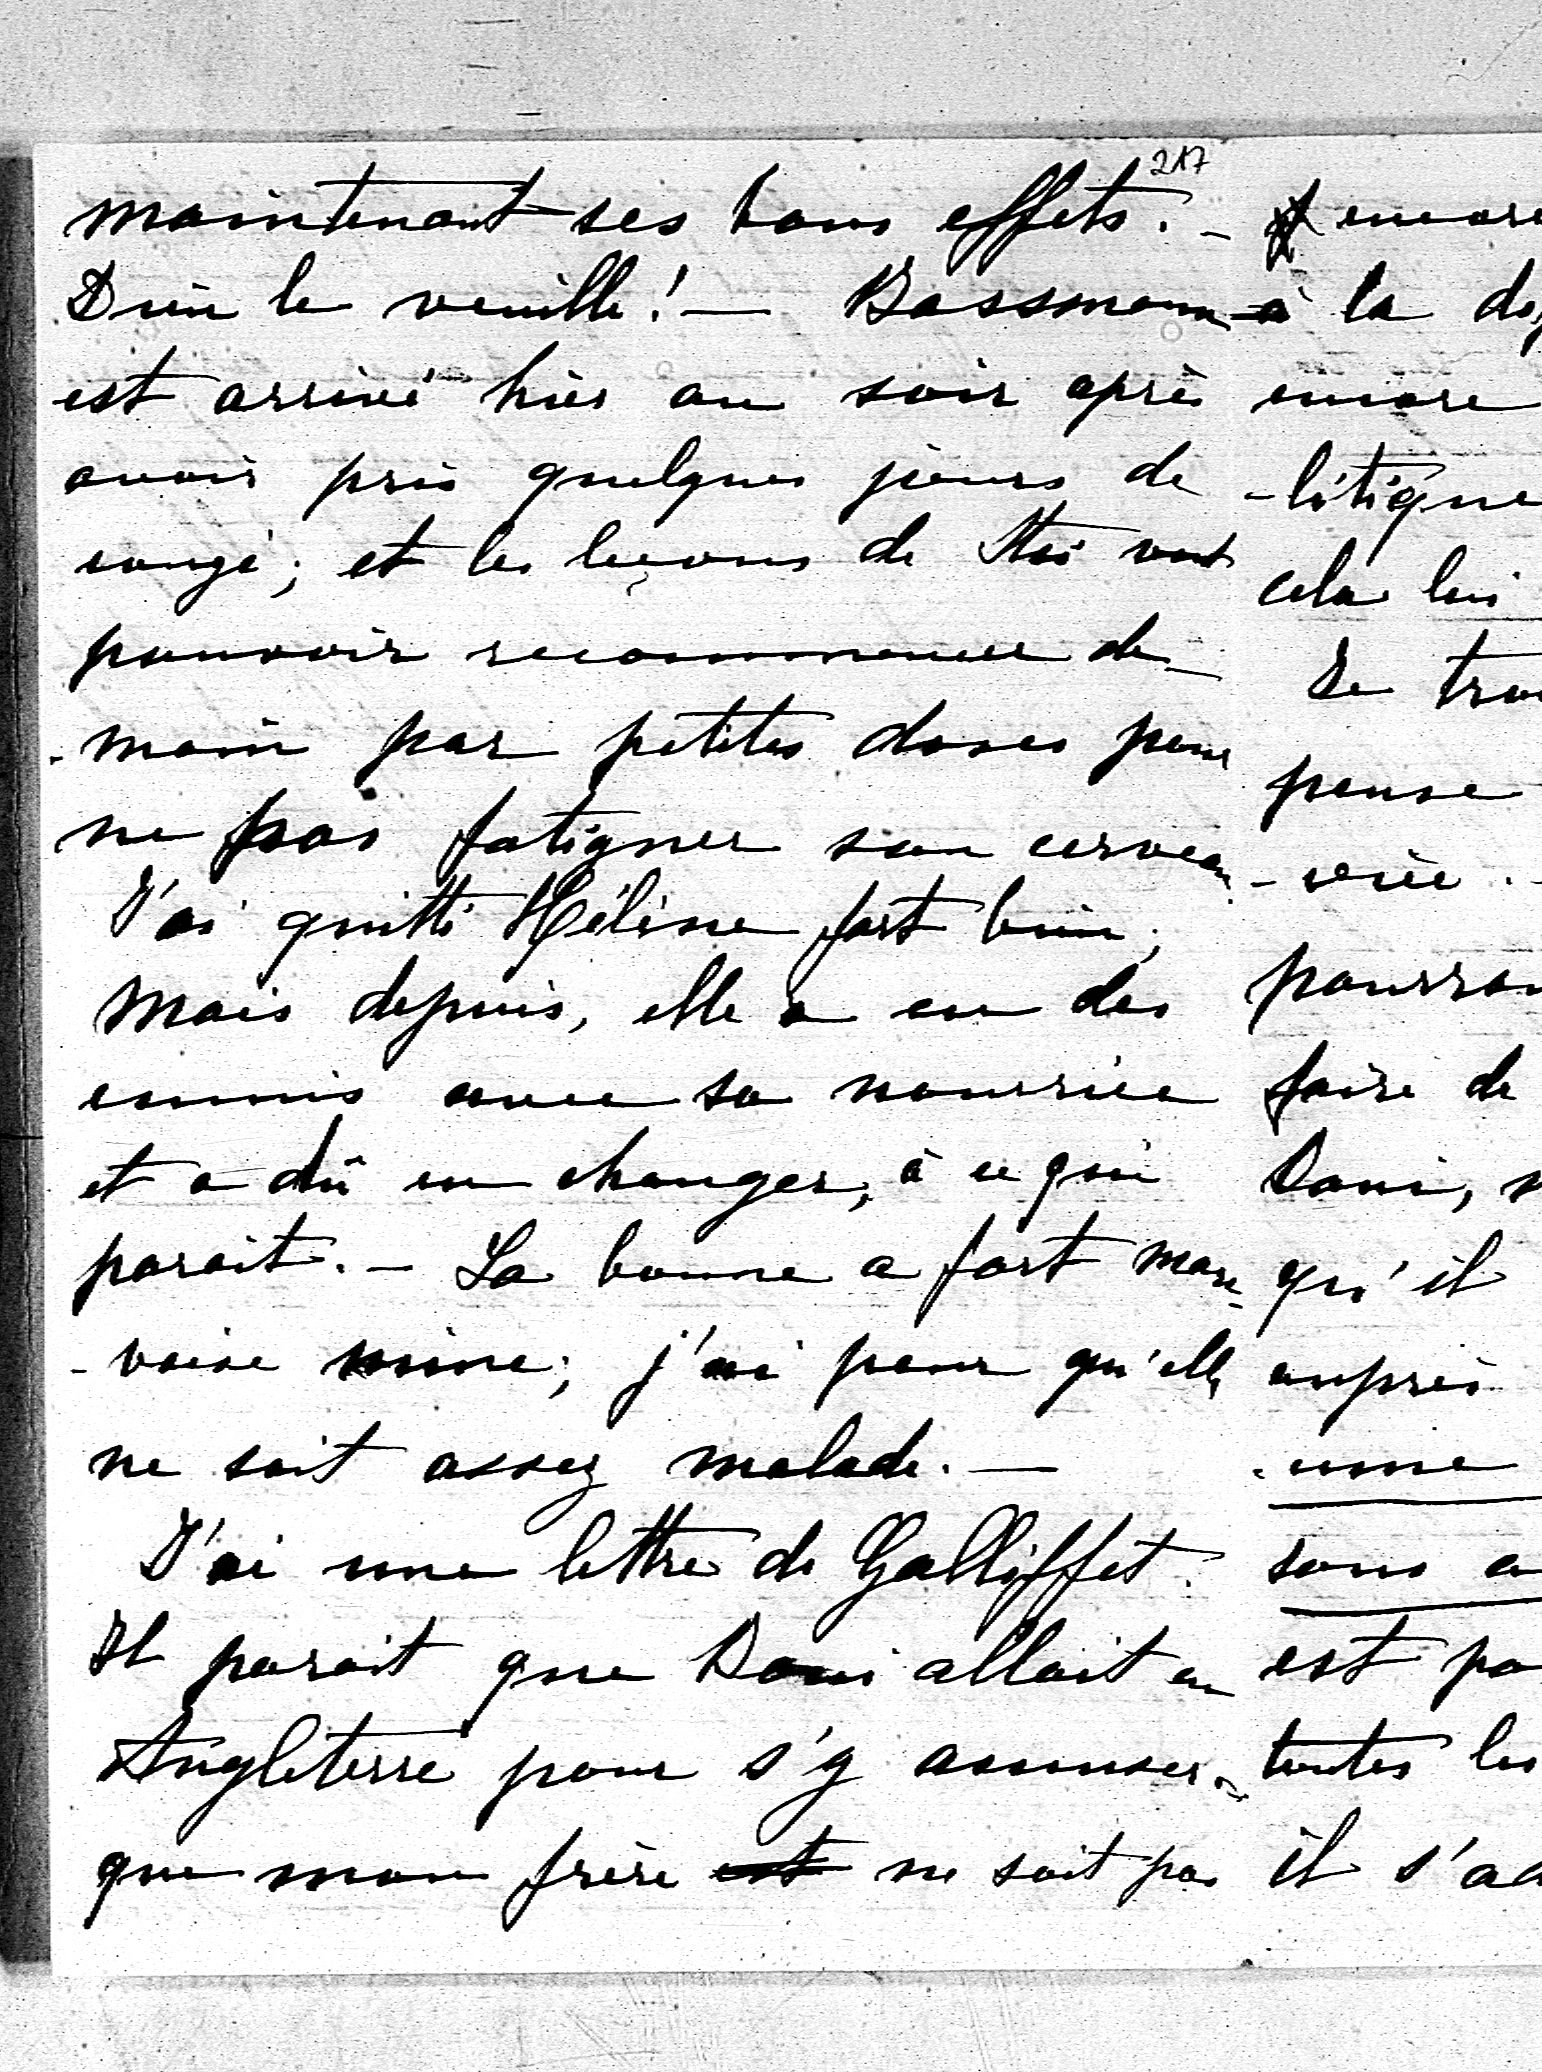 217
maintenant ses bons effets. -
Dieu le veuille! - Bassmann
est arrivé hier au soir après
avoir pris quelques jours de
congé; et les leçons de Stas vont
pouvoir recommencer de-
-main par petites doses pour
ne pas fatiguer son cerveau.
J'ai quitté Hélène fort bien;
mais depuis, elle a eu des
ennuis avec sa nourrice
et a dû en changer, à ce qui
parait. - La bonne a fort mau-
-vaise mine; j'ai peur qu'elle
ne soit assez malade. -
J'ai une lettre de Galliffet.
Il parait que Boni allait en
Angleterre pour s'y amuser
que mon frère est ne soit pas
encore
à la
encore
-litique
cela lui
Je
pense
pourron
faire de
Boni,
qu'il
auprès
sans
est pa
toutes les
il s'